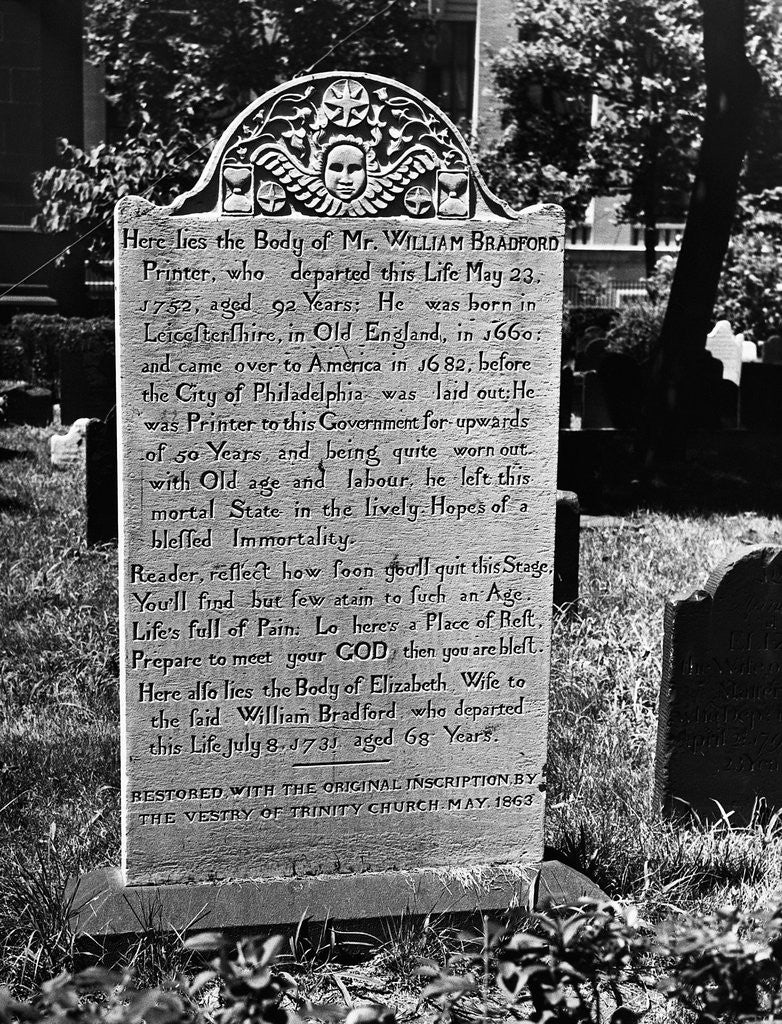 Here lies the Body of Mr. WILLIAM BRADFORD
Printer, who departed this Life May 23,
1752, aged 92 Years: He was born in
Leiceſterſhire, in Old England, in 1660:
and came over to America in 1682, before
the City of Philadelphia was laid out: He
was Printer to this Government for upwards
of 50 Years and being quite worn out
with Old age and labour, he left this
mortal State in the lively Hopes of a
bleſſed Immortality.
Reader, reflect how ſoon you'll quit this Stage,
You'll find but few atain to ſuch an Age.
Life's full of Pain: Lo here's a Place of Reſt,
Prepare to meet your GOD, then you are bleſt.
Here alſo lies the Body of Elizabeth Wife to
the ſaid William Bradford who departed
this Life July 8. 1731. aged 68 Years.
RESTORED, WITH THE ORIGINAL INSCRIPTION, BY
THE VESTRY OF TRINITY CHURCH. MAY. 1863
the Wife
April